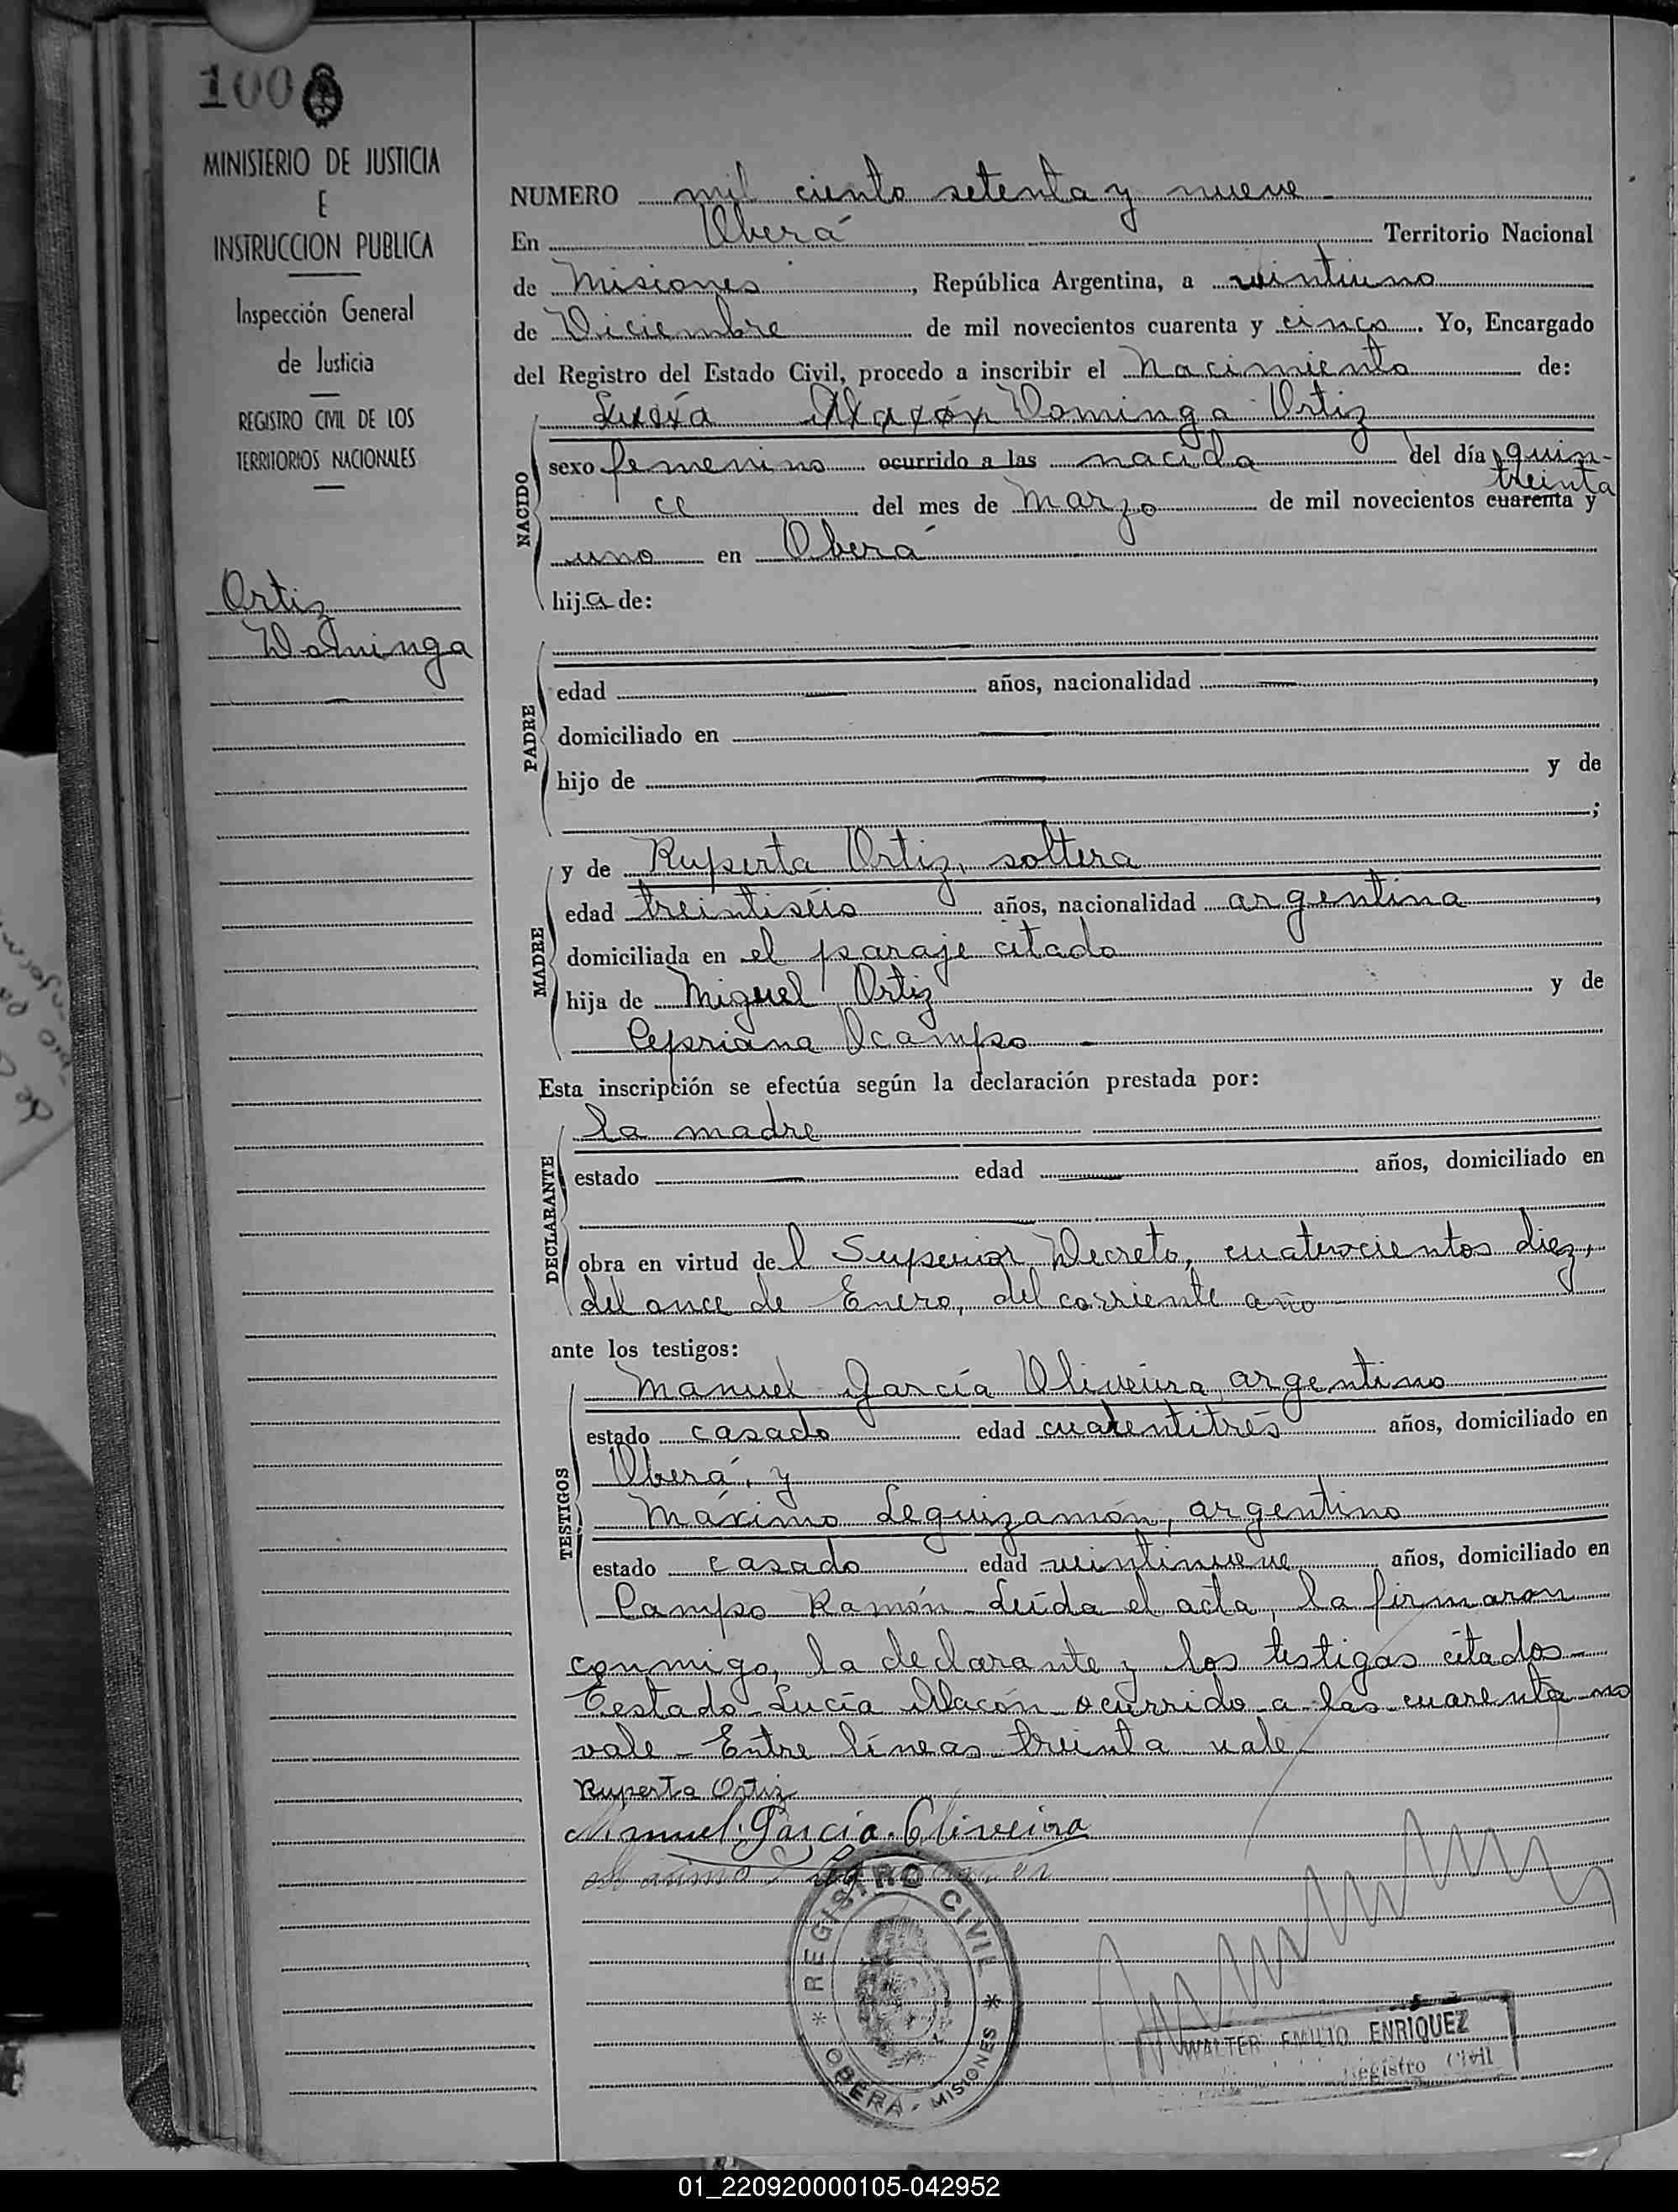 100
MINISTERIO DE JUSTICIA
E
INSTRUCCION PUBLICA
Inspección General
de Justicia
REGISTRO CIVIL DE LOS
TERRITORIOS NACIONALES
Ortiz
Dominga
NUMERO mil ciento setenta y nueve
En Oberá Territorio Nacional
de Misiones, República Argentina, a veintiuno
de Diciembre de mil novecientos cuarenta y cinco. Yo, Encargado
del Registro del Estado Civil, procedo a inscribir el Nacimiento de:
Lucía Macón Dominga Ortiz
NACIDO
sexo femenino ocurrido a las nacida del día quin-
treinta
ce del mes de Marzo de mil novecientos cuarenta y
uno en Oberá
hija de:
PADRE
edad años, nacionalidad ,
domiciliado en
hijo de y de
;
MADRE
y de Ruperta Ortiz, soltera
edad treintiséis años, nacionalidad argentina,
domiciliada en el paraje citado
hija de Miguel Ortiz y de
Cepriana Ocampo
Esta inscripción se efectúa según la declaración prestada por:
DECLARANTE
la madre
estado edad años, domiciliado en
obra en virtud del Superior Decreto, cuatrocientos diez,
del once de Enero, del corriente año
ante los testigos:
TESTIGOS
Manuel García Oliveira, argentino
estado casado edad cuarentitrés años, domiciliado en
Oberá, y
Máximo Leguizamón, argentino
estado casado edad veintinueve años, domiciliado en
Campo Ramón - Leída el acta, la firmaron
conmigo, la declarante y los testigos citados -
Testado Lucía Macón ocurrido a las cuarenta no
vale - Entre líneas treinta vale
Ruperta Ortiz
Manuel García Oliveira
Maximo
* REGISTRO CIVIL *
OBERÁ - MISIONES
WALTER EMILIO ENRIQUEZ
Registro Civil
01_220920000105-042952